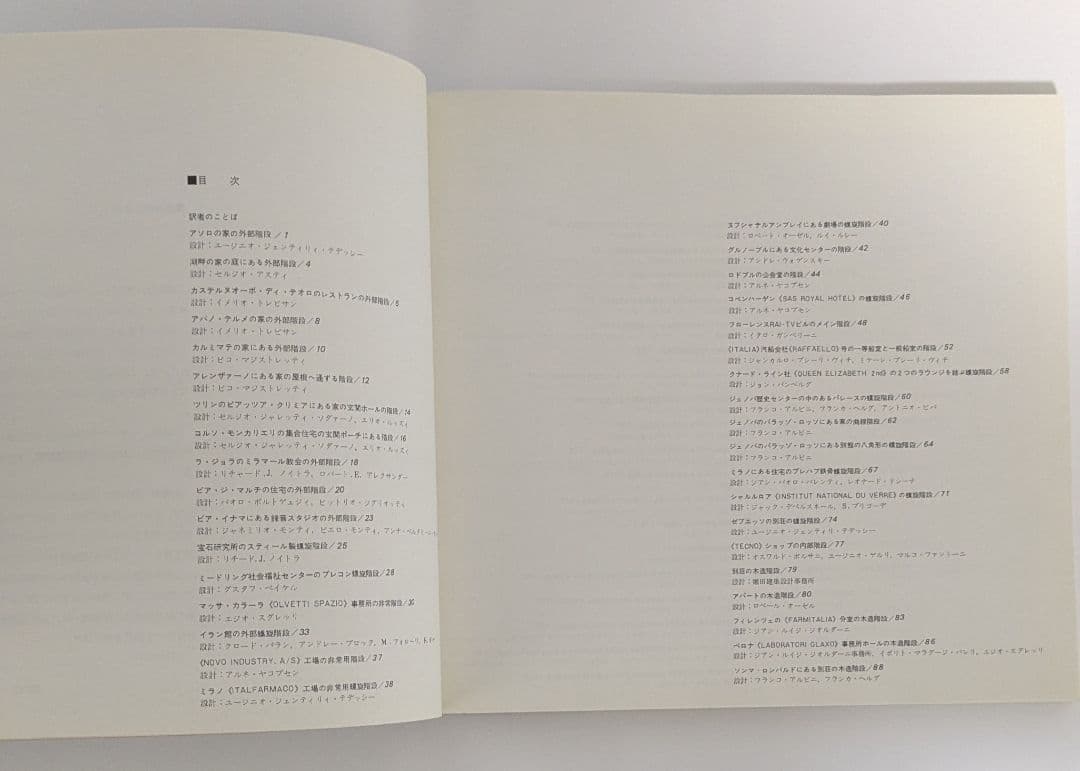 ■目 次
訳者のことば
アソロの家の外部階段/1
設計:ユージニオ・ジェンティリィ・テデッシー
湖畔の家の庭にある外部階段/4
設計:セルジオ・アスティ
カステルヌオーボ・ディ・テオロのレストランの外部階段/6
設計:イメリオ・トレビサン
アバノ・テルメの家の外部階段/8
設計:イメリオ・トレビサン
カルミマテの家にある外部階段/10
設計:ビコ・マジストレッティ
アレンザァーノにある家の屋根へ通ずる階段/12
設計:ビコ・マジストレッティ
ツリンのピアッツア・クリミアにある家の玄関ホールの階段/14
設計:セルジオ・ジャレッティ・ソダァーノ、エリオ・ルッズィ
コルソ・モンカリエリの集合住宅の玄関ポーチにある階段/16
設計:セルジオ・ジャレッティ・ソダァーノ、エリオ・ルッズィ
ラ・ジョラのミラマール教会の外部階段/18
設計:リチャード.J. ノイトラ、ロバート.E. アレクサンダー
ビア・ジ・マルチの住宅の外部階段/20
設計:パオロ・ポルトゲェジィ、ビットリオ・ジグリオッティ
ビア・イナマにある録音スタジオの外部階段/23
設計:ジャネミリオ・モンティ、ピエロ・モンティ、
宝石研究所のスティール製螺旋階段/25
設計:リチード.J. ノイトラ
ミードリング社会福祉センターのプレコン螺旋階段/28
設計:グスタフ・ペイケル
マッサ・カラーラ《OLVETTI SPAZIO》事務所の非常階段/30
設計:エジオ・スグレッリ
イラン館の外部螺旋階段/33
設計:クロード・パラン、アンドレー・ブロック、M.フォルーリ、
《NOVO INDUSTRY, A/S》工場の非常用階段/37
設計:アルネ・ヤコブセン
ミラノ《ITALFARMACO》工場の非常用螺旋階段/38
設計:ユージニオ・ジェンティリィ・テデッシー
ヌフシャテルアンプレイにある劇場の螺旋階段/40
設計:ロベート・オーゼル、ルイ・ルシー
グルノーブルにある文化センターの階段/42
設計:アンドレ・ウォゲンスキー
ロドブルの公会堂の階段/44
設計:アルネ・ヤコブセン
コペンハーゲン《SAS ROYAL HOTEL》の螺旋階段/46
設計:アルネ・ヤコブセン
フローレンスRAI-TVビルのメイン階段/48
設計:イタロ・ガンベリーニ
《ITALIA》汽船会社《RAFFAELLO》号の一等船室と一般船室の階段/52
設計:ジャンカルロ・プシーリ・ヴィチ、ミケーレ・プシーリ・ヴィチ
クナード・ライン社《QUEEN ELIZABETH 2nd》の2つのラウンジを結ぶ螺旋階段/58
設計:ジョン・バンベルグ
ジェノバ歴史センターの中のあるパレースの螺旋階段/60
設計:フランコ・アルビニ、フランカ・ヘルグ、アントニオ・ピバ
ジェノバのパラッゾ・ロッソにある家の曲線階段/62
設計:フランコ・アルビニ
ジェノバのパラッゾ・ロッソにある別館の八角形の螺旋階段/64
設計:フランコ・アルビニ
ミラノにある住宅のプレハブ鉄骨螺旋階段/67
設計:ジアン・パオロ・バレンティ、レオナード・ドシーナ
シャルルロア《INSTITUT NATIONAL DU VERRE》の螺旋階段/71
設計:ジャック・デパルスネール、S.ブリコーデ
ゼブエッツの別荘の螺旋階段/74
設計:ユージニオ・ジェンティリ・テデッシー
《TECNO》ショップの内部階段/77
設計:オスワルド・ボルサニ、ユージニオ・ゲルリ、マルコ・ファントーニ
別荘の木造階段/79
設計:園田建築設計事務所
アパートの木造階段/80
設計:ロベール・オーゼル
フィレンツェの《FARMITALIA》分室の木造階段/83
設計:ジアン・ルイジ・ジオルダーニ
ベロナ《LABORATORI GLAXO》事務所ホールの木造階段/86
設計:ジアン・ルイジ・ジオルダーニ事務所、イポリト・マラグージ・バレリ、エジオ・スグレッリ
ソンマ・ロンバルドにある別荘の木造階段/88
設計:フランコ・アルビニ、フランカ・ヘルグ